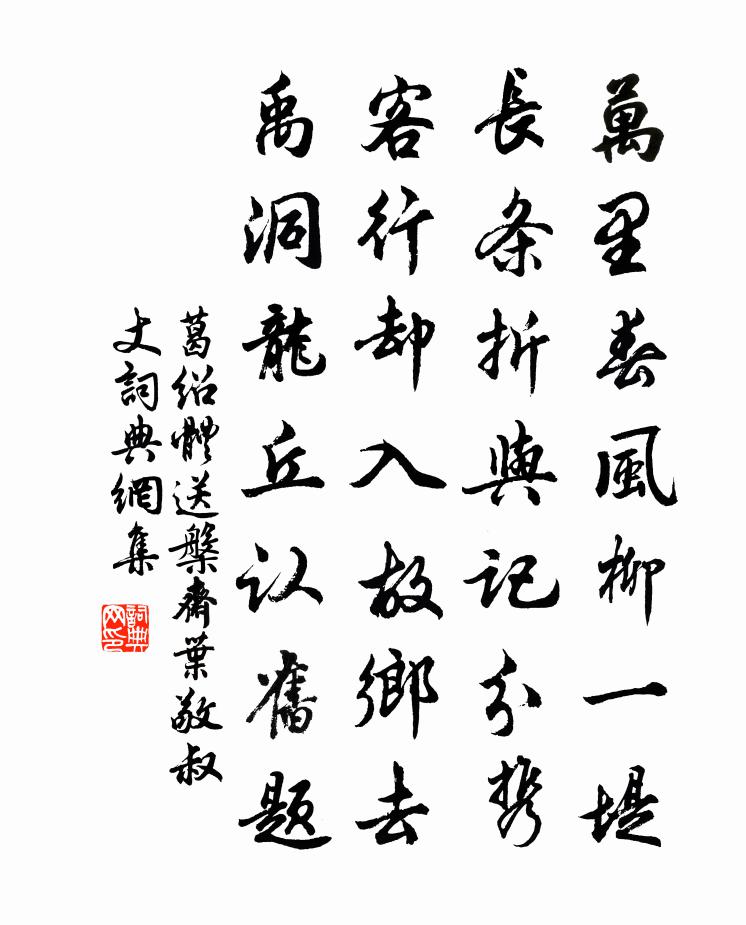 萬里春風柳一堤
長条折與記分携
客行却入故鄉去
禹洞龍丘认舊题
葛绍體送槃齋葉敬叔
丈詞典網集
詞典网印